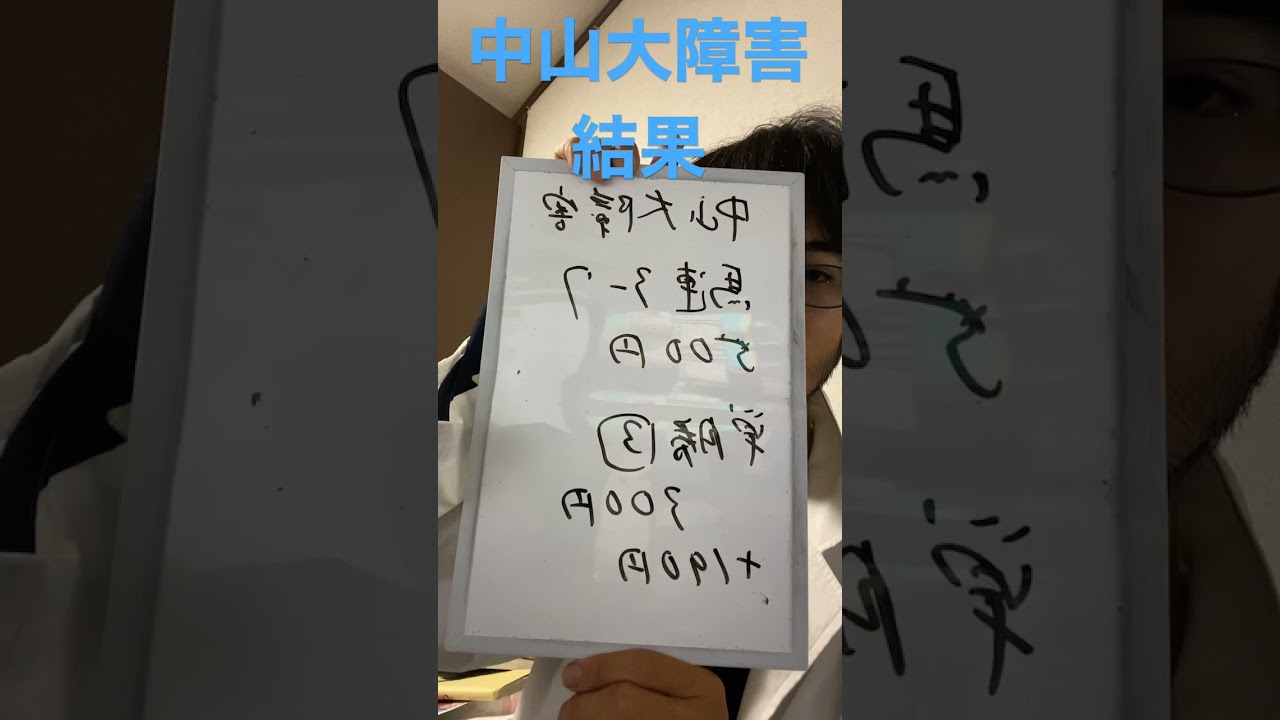 中山大障害
結果
中山大障害
馬連 3-7
500円
単勝 ③
300円
+190円